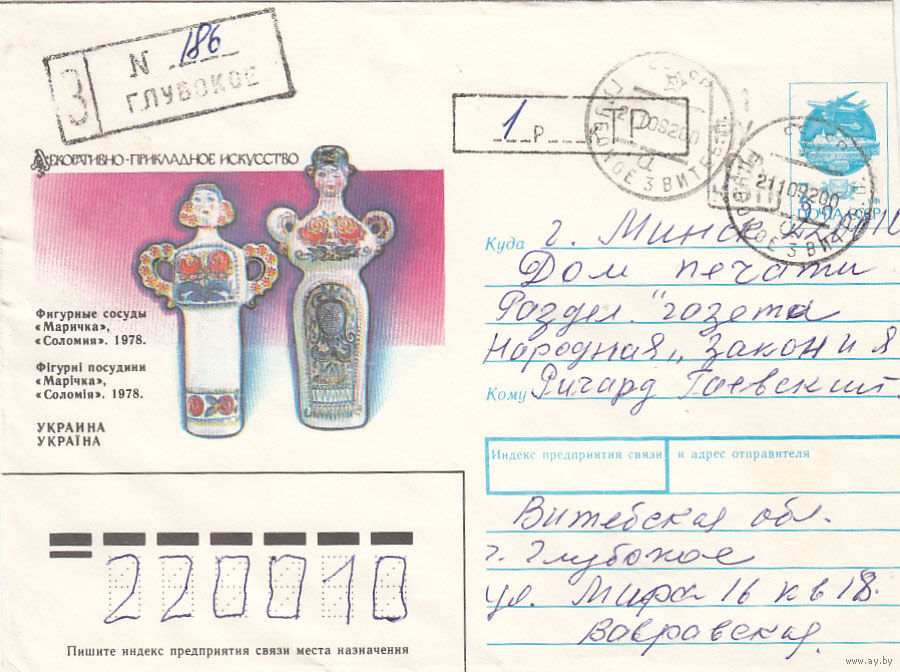 З
N 186
ГЛУБОКОЕ
1 Р ТР
21109200
ГЛУБОКОЕ 3 ВИТЕБ.
21109200
ПОЧТА СССР
ДЕКОРАТИВНО-ПРИКЛАДНОЕ ИСКУССТВО
Фигурные сосуды
«Маричка»,
«Соломия». 1978.
Фігурні посудини
«Марічка»,
«Соломія». 1978.
УКРАИНА
УКРАЇНА
Куда г. Минск
Дом печати
Раздел. "газета
Народная„ Закон и я
Кому Ричард Гаевский
Индекс предприятия связи и адрес отправителя
Витебская обл.
г. Глубокое
ул. Мира 16 кв 18.
Вавравская
220010
Пишите индекс предприятия связи места назначения
www.ay.by